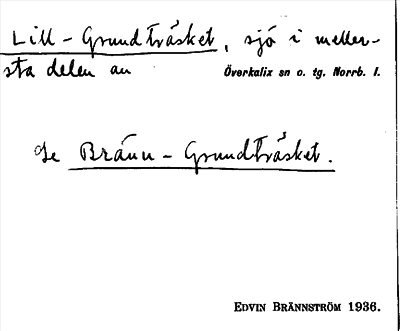 Lill-Grundträsket, sjö i meller-
sta delen av Överkalix sn o. tg. Norrb. l.
Se Bränn-Grundträsket.
EDVIN BRÄNNSTRÖM 1936.